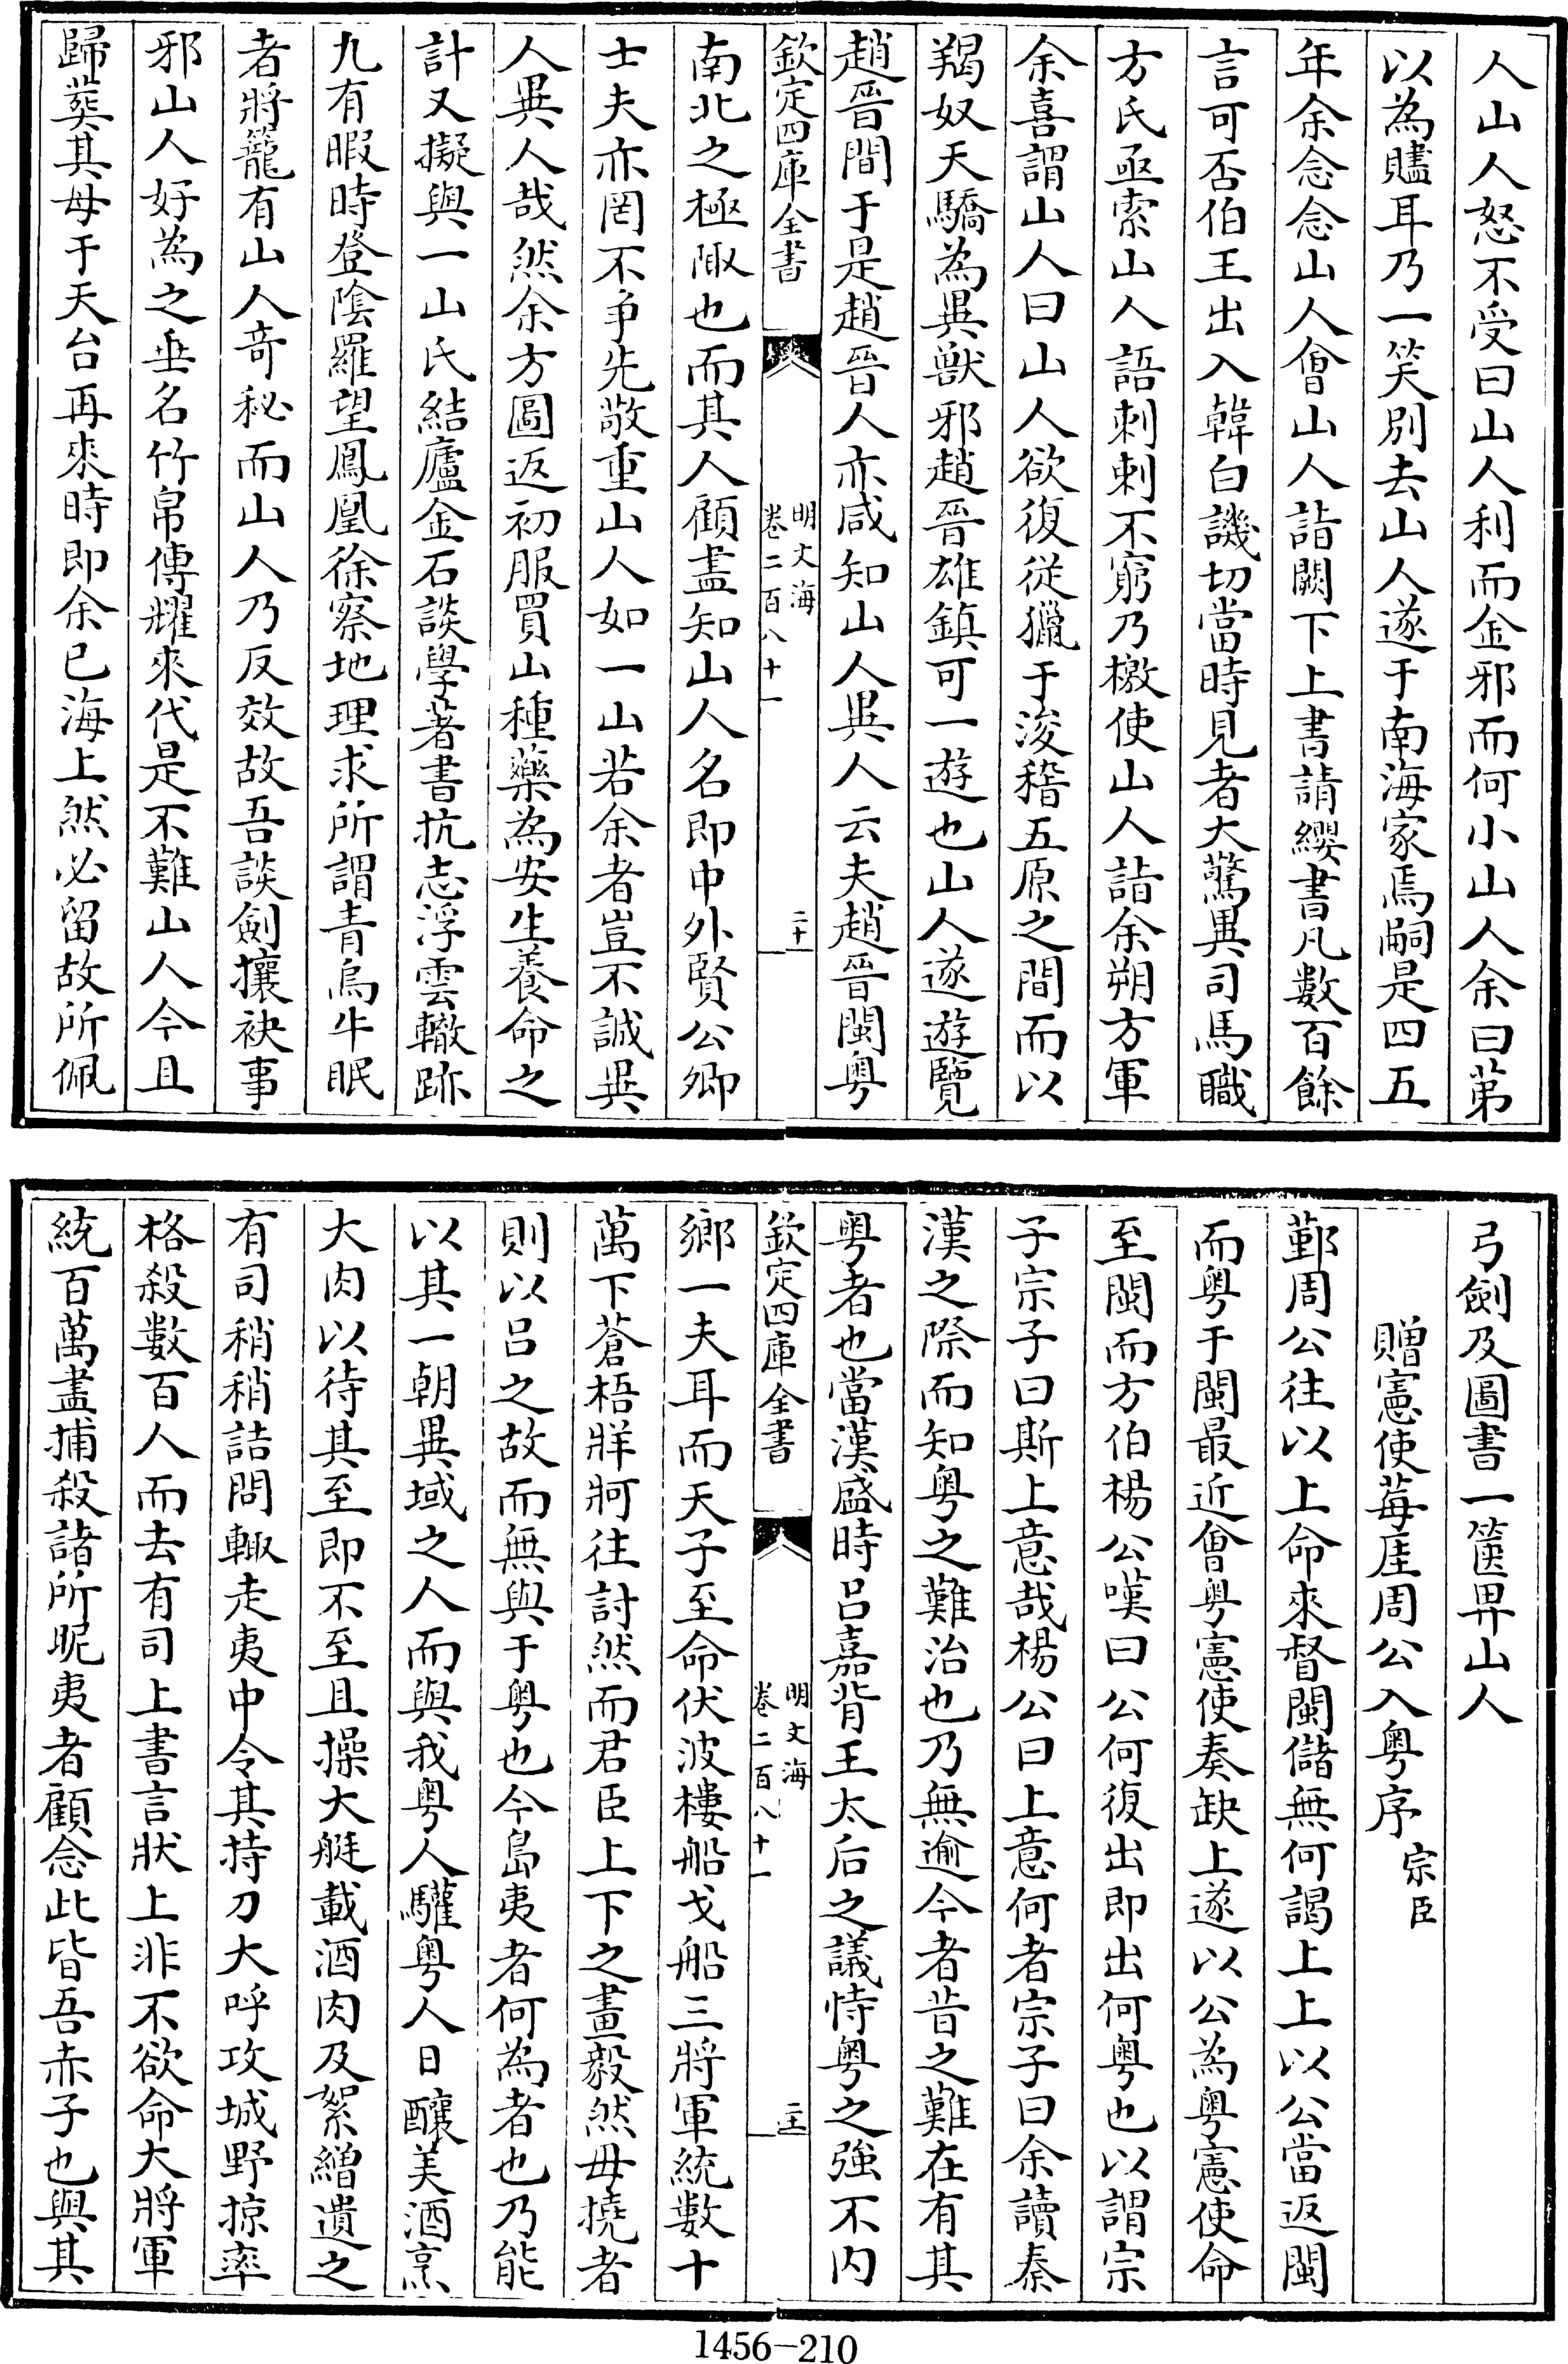 人山人怒不受曰山人利而金邪而何小山人余曰第
以為贐耳乃一笑別去山人遂于南海家焉嗣是四五
年余念念山人㑹山人詣闕下上書請纓書凡數百餘
言可否伯王出入韓白譏切當時見者大驚異司馬職
方氏亟索山人語刺刺不窮乃檄使山人詣余朔方軍
余喜謂山人曰山人欲復從獵于浚稽五原之間而以
羯奴天驕為異獸邪趙晉雄鎮可一遊也山人遂遊覽
趙晉間于是趙晉人亦咸知山人異人云夫趙晉閩粤
欽定四庫全書
明文海
卷二百八十一
二十
南北之極陬也而其人顧盡知山人名即中外賢公卿
士夫亦罔不争先敬重山人如一山若余者豈不誠異
人異人哉然余方圖返初服買山種藥為安生養命之
計又擬與一山氏結廬金石談學著書抗志浮雲轍跡
九有暇時登陰羅望鳳凰徐察地理求所謂青烏牛眠
者將籠有山人竒秘而山人乃反效故吾談劍攘袂事
邪山人好為之垂名竹帛傳耀來代是不難山人今且
歸葬其母于天台再來時即余已海上然必留故所佩
弓劍及圖書一篋畀山人
贈憲使莓厓周公入粤序 宗臣
鄞周公往以上命來督閩儲無何謁上上以公當返閩
而粤于閩最近㑹粤憲使奏缺上遂以公為粤憲使命
至閩而方伯楊公嘆曰公何復出即出何粤也以謂宗
子宗子曰斯上意哉楊公曰上意何者宗子曰余讀秦
漢之際而知粤之難治也乃無逾今者昔之難在有其
粤者也當漢盛時吕嘉背王太后之議恃粤之強不内
欽定四庫全書
明文海
卷二百八十一
二十一
鄉一夫耳而天子至命伏波樓船戈船三將軍統數十
萬下蒼梧牂牁往討然而君臣上下之畫毅然毋撓者
則以吕之故而無與于粤也今島夷者何為者也乃能
以其一朝異域之人而與我粤人驩粤人日釀美酒烹
大肉以待其至即不至且操大艇載酒肉及絮繒遺之
有司稍稍詰問輙走夷中令其持刀大呼攻城野掠率
格殺數百人而去有司上書言狀上非不欲命大將軍
統百萬盡捕殺諸所昵夷者顧念此皆吾赤子也與其
1456-210